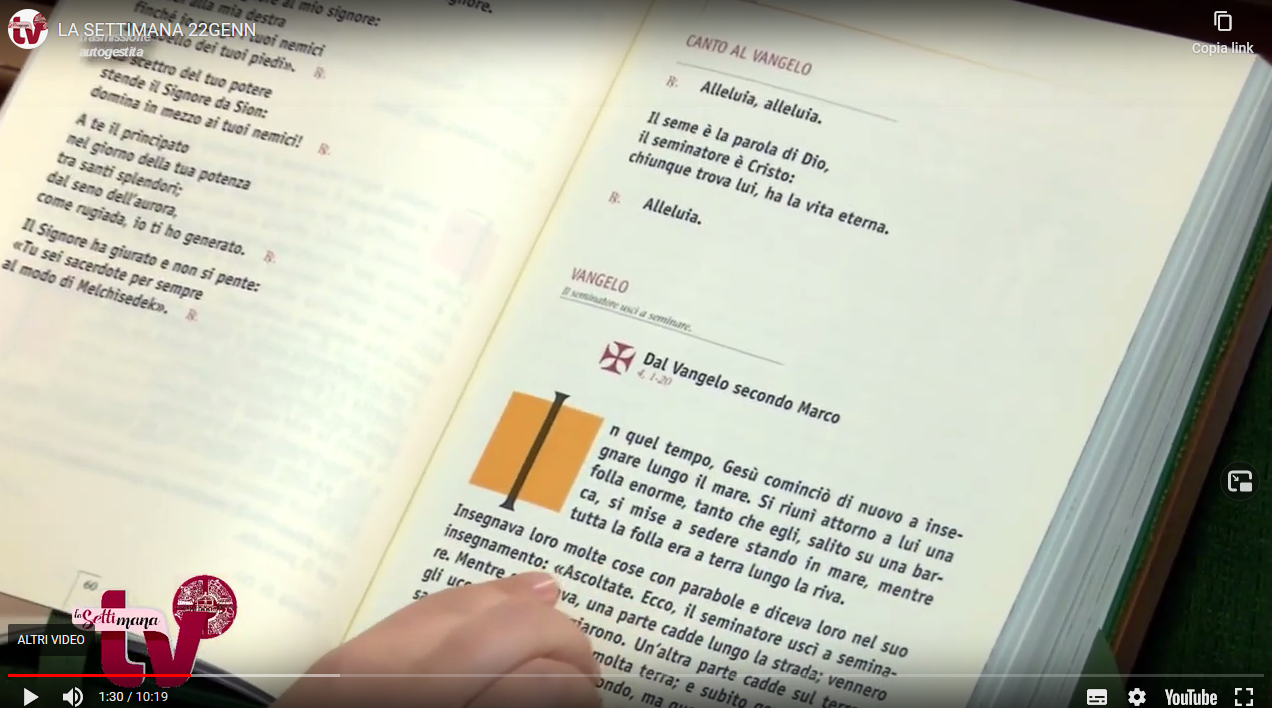 LA SETTIMANA 22GENN
Trasmissione
autogestita
Copia link
al mio signore:
alla mia destra
finché
tuoi nemici
dei tuoi piedi». ℟.
scettro del tuo potere
stende il Signore da Sion:
domina in mezzo ai tuoi nemici! ℟.
A te il principato
nel giorno della tua potenza
tra santi splendori;
dal seno dell'aurora,
come rugiada, io ti ho generato. ℟.
Il Signore ha giurato e non si pente:
«Tu sei sacerdote per sempre
al modo di Melchìsedek». ℟.
60
signore.
CANTO AL VANGELO
℟. Alleluia, alleluia.
Il seme è la parola di Dio,
il seminatore è Cristo:
chiunque trova lui, ha la vita eterna.
℟. Alleluia.
VANGELO
Il seminatore uscì a seminare.
Dal Vangelo secondo Marco
4, 1-20
In quel tempo, Gesù cominciò di nuovo a inse-
gnare lungo il mare. Si riunì attorno a lui una
folla enorme, tanto che egli, salito su una bar-
ca, si mise a sedere stando in mare, mentre
tutta la folla era a terra lungo la riva.
Insegnava loro molte cose con parabole e diceva loro nel suo
insegnamento: «Ascoltate. Ecco, il seminatore uscì a semina-
re. Mentre va, una parte cadde lungo la strada; vennero
gli ucc iarono. Un'altra parte cadde sul terr
molta terra; e subito
ondo, ma
la Settimana
tv
ALTRI VIDEO
1:30 / 10:19
YouTube